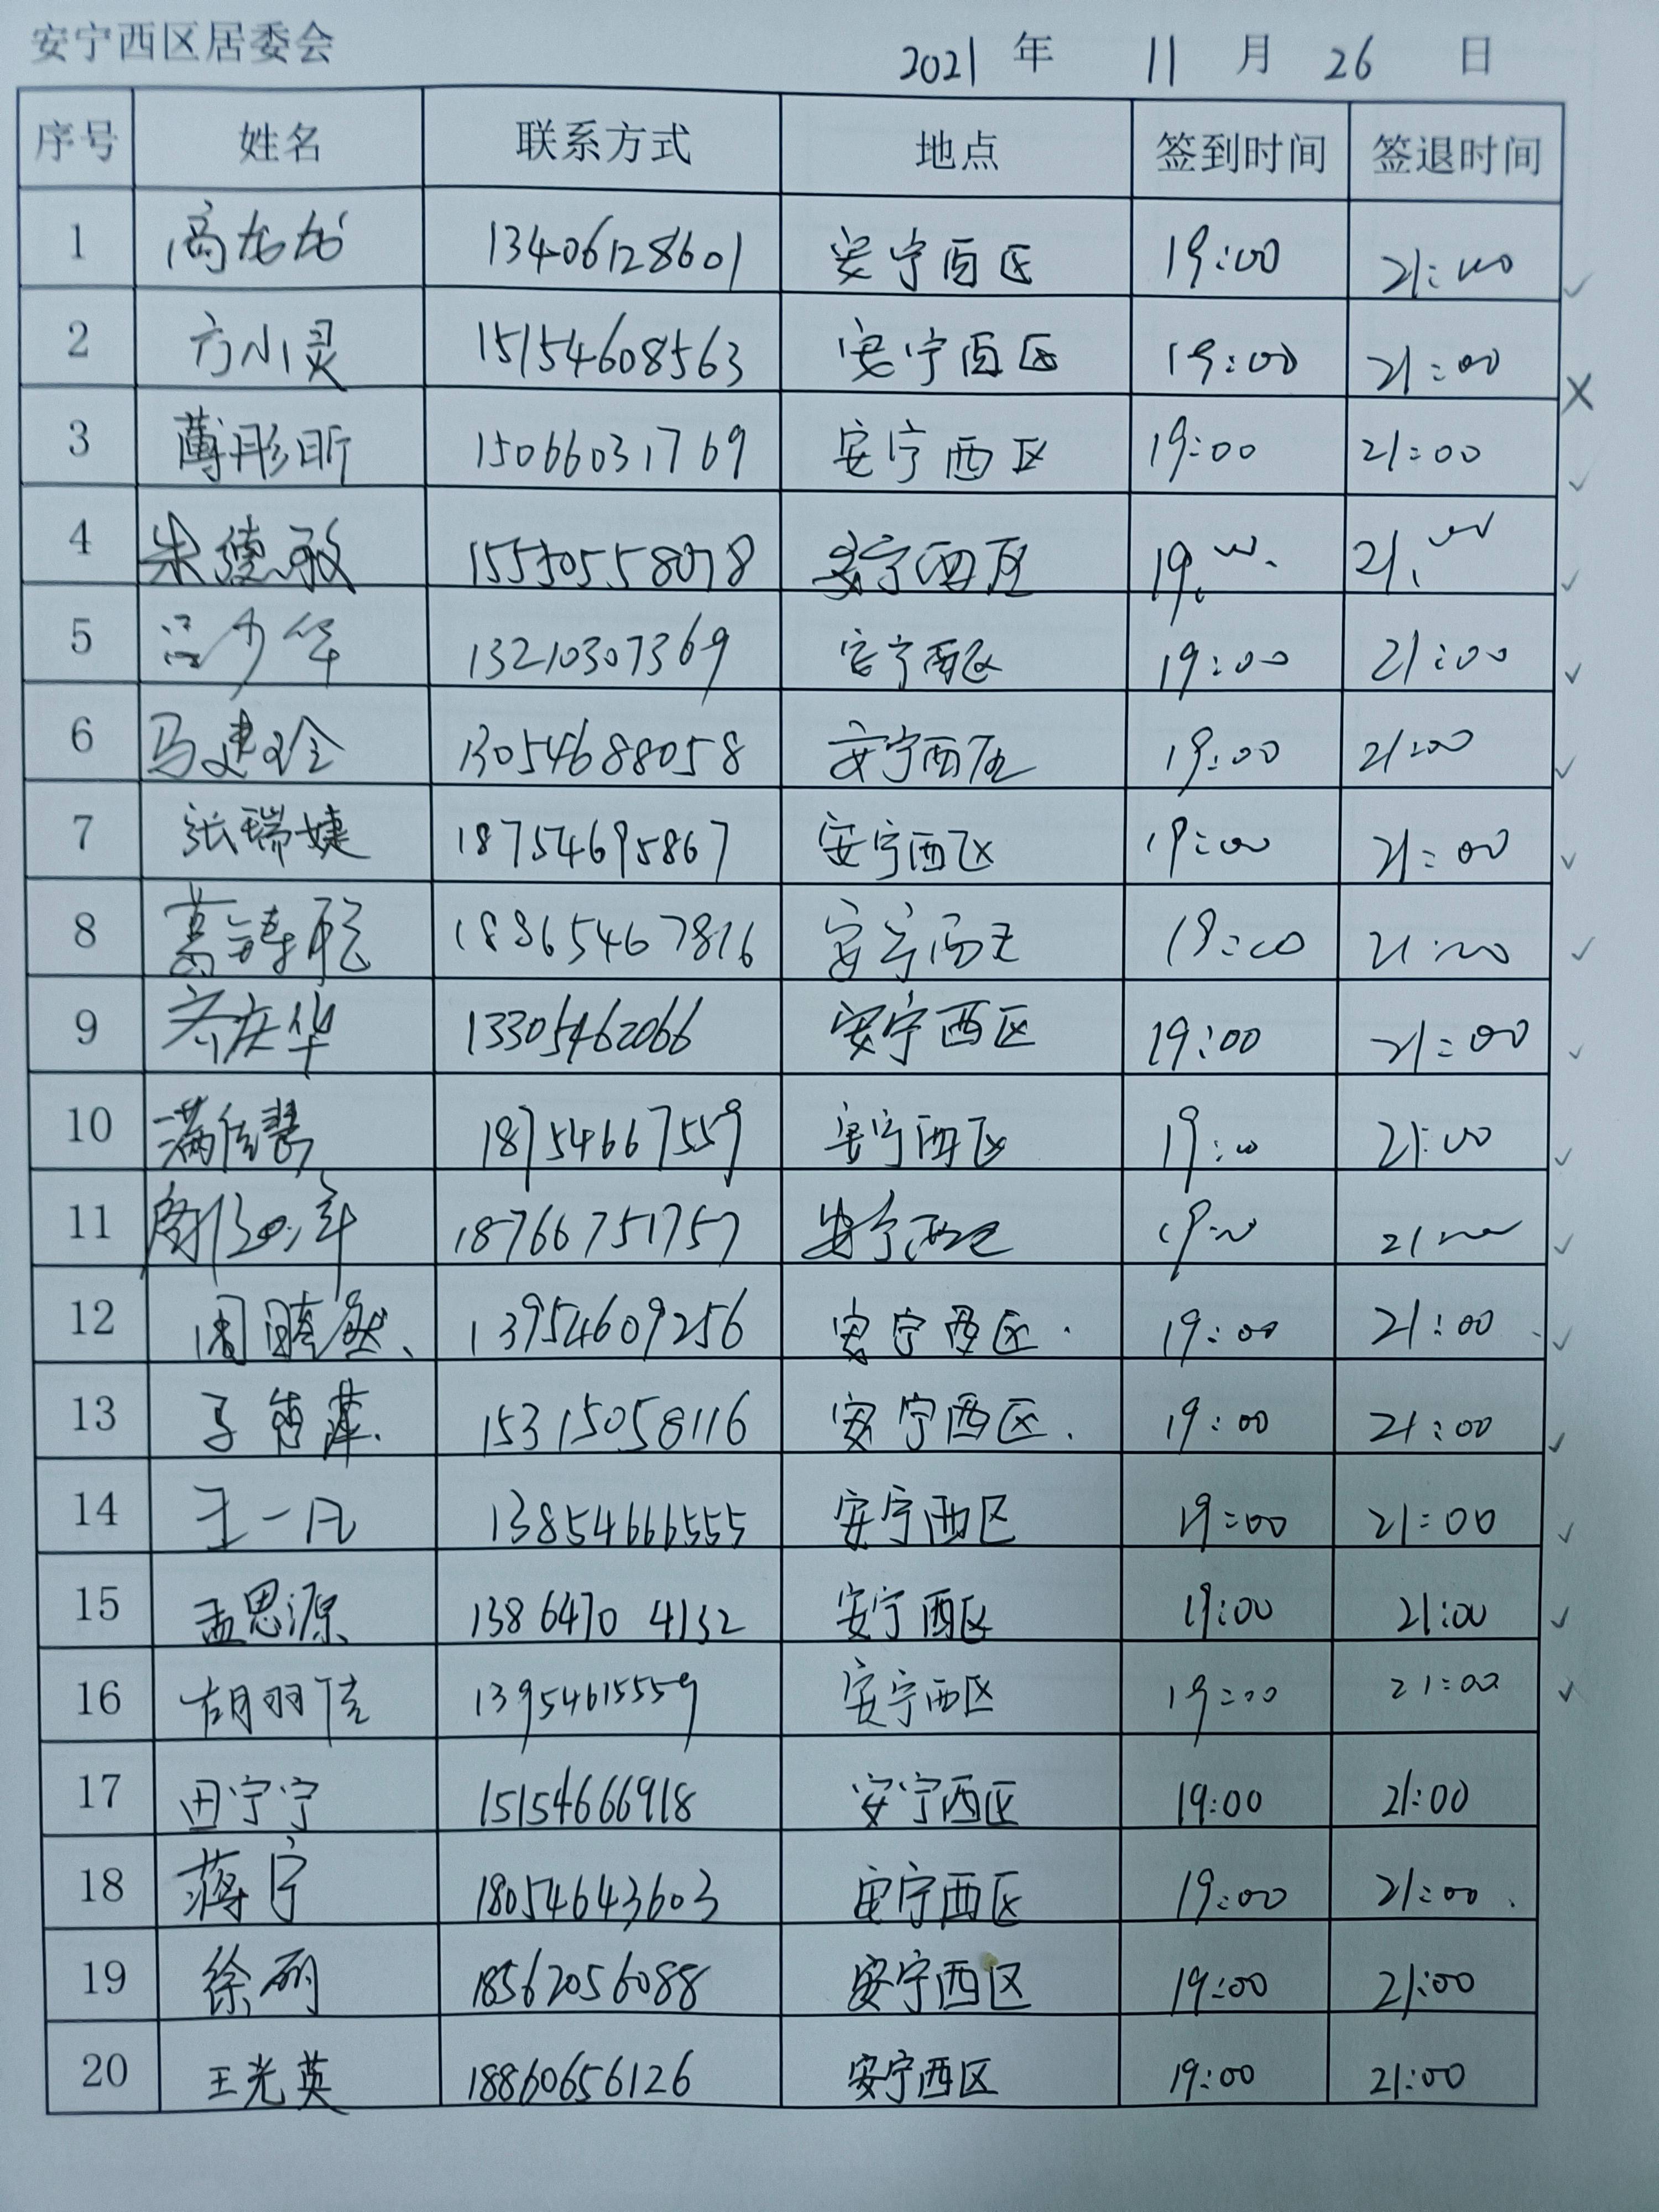 安宁西区居委会 2021 年 11 月 26 日
序号 姓名 联系方式 地点 签到时间 签退时间
1 高龙龙 13406128601 安宁西区 19:00 21:00
2 方小灵 15154608563 安宁西区 19:00 21:00
3 薄彤昕 15066031769 安宁西区 19:00 21:00
4 朱德敏 15530558078 安宁西区 19:00 21:00
5 吕少华 13210307369 安宁西区 19:00 21:00
6 马建玲 13054688058 安宁西区 19:00 21:00
7 张瑞婕 18754695867 安宁西区 19:00 21:00
8 18865467816 安宁西区 19:00 21:00
9 齐庆华 13305462066 安宁西区 19:00 21:00
10 满佳慧 18754667559 安宁西区 19:00 21:00
11 18766751757 安宁西区 19:00 21:00
12 周晴然 13954609256 安宁西区 19:00 21:00
13 15315058116 安宁西区 19:00 21:00
14 王一凡 13854666555 安宁西区 19:00 21:00
15 孟思源 13864704132 安宁西区 19:00 21:00
16 胡羽佳 13954615559 安宁西区 19:00 21:00
17 田宁宁 15154666918 安宁西区 19:00 21:00
18 蒋宁 18054643603 安宁西区 19:00 21:00
19 徐丽 18562056088 安宁西区 19:00 21:00
20 王光英 18860656126 安宁西区 19:00 21:00